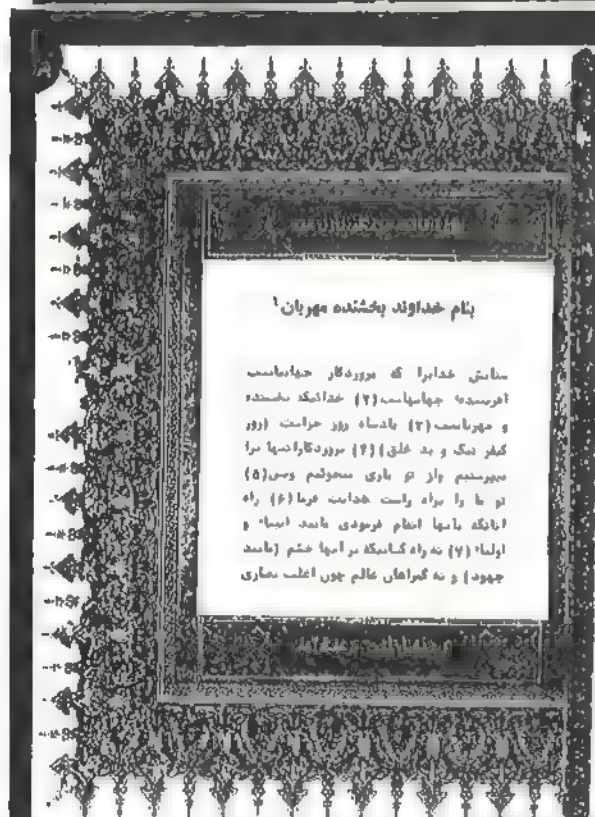 بنام خداوند بخشنده مهربان¹
ستایش خدایرا که پروردگار جهانیانست
آفریننده جهانیانست (۲) خدائیکه بخشنده
و مهربانست (۳) پادشاه روز جزاست (روز
کیفر نیک و بد خلق) (۴) پروردگارا تنها ترا
میپرستیم و از تو یاری میجوئیم وبس (۵)
تو ما را براه راست هدایت فرما (۶) راه
آنانکه بآنها انعام فرمودی مانند انبیاء و
اولیاء (۷) نه راه کسانیکه بر آنها خشم (مانند
جهود) و نه گمراهان عالم چون اغلب نصاری